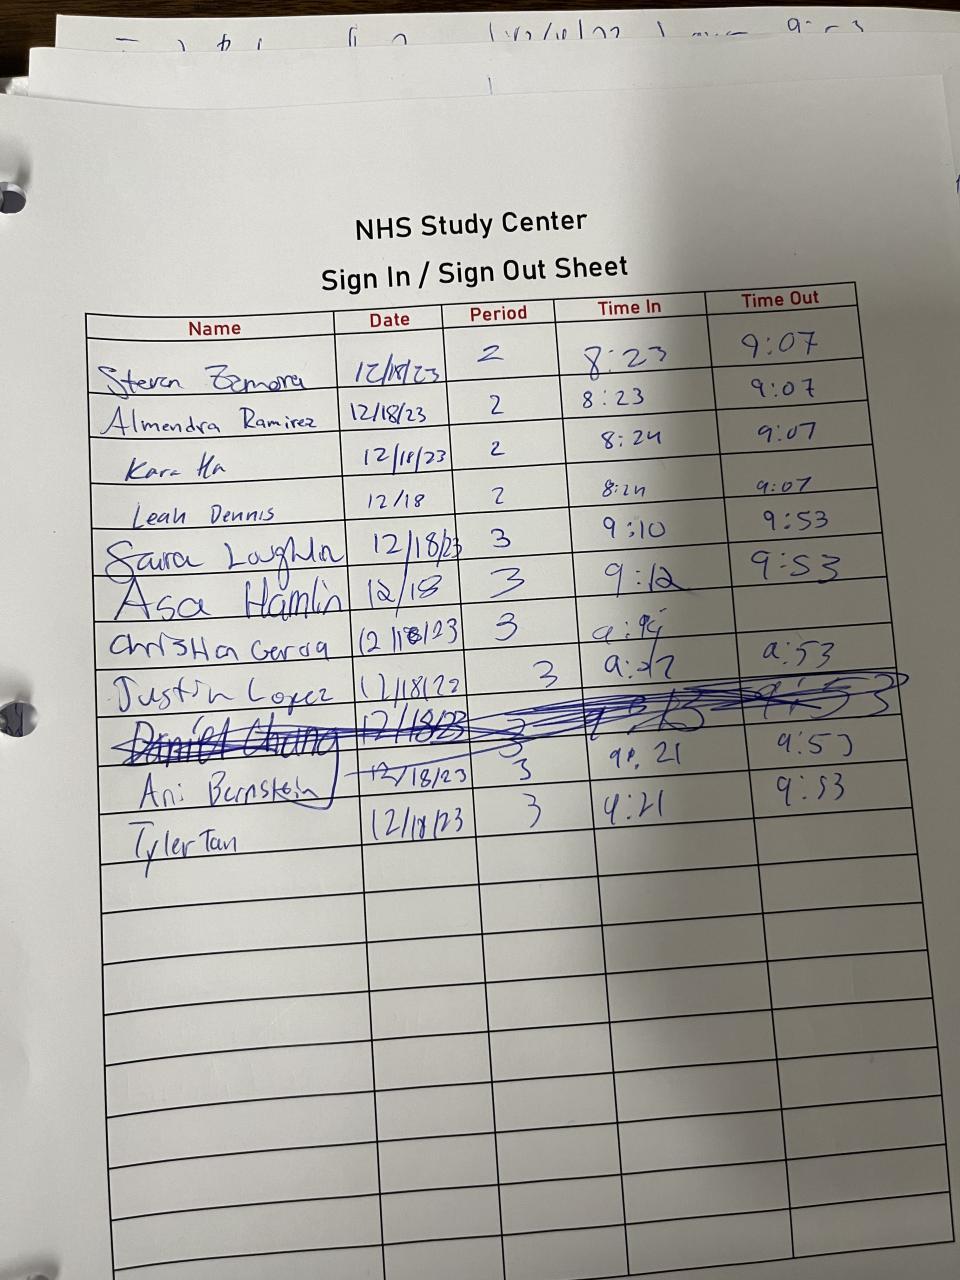 NHS Study Center
Sign In / Sign Out Sheet
Name Date Period Time In Time Out
Steven Zamora 12/18/23 2 8:23 9:07
Almendra Ramirez 12/18/23 2 8:23 9:07
Kara Ha 12/18/23 2 8:24 9:07
Leah Dennis 12/18 2 8:24 9:07
Saira Loughlin 12/18/23 3 9:10 9:53
Asa Hamlin 12/18 3 9:12 9:53
Christian Garcia 12/18/23 3
Justin Lopez 3 9:53
Daniel Chung 12/18/23 3 9:53
Ani Bernstein 12/18/23 3 9:21 9:53
Tyler Tan 12/18/23 3 9:21 9:53